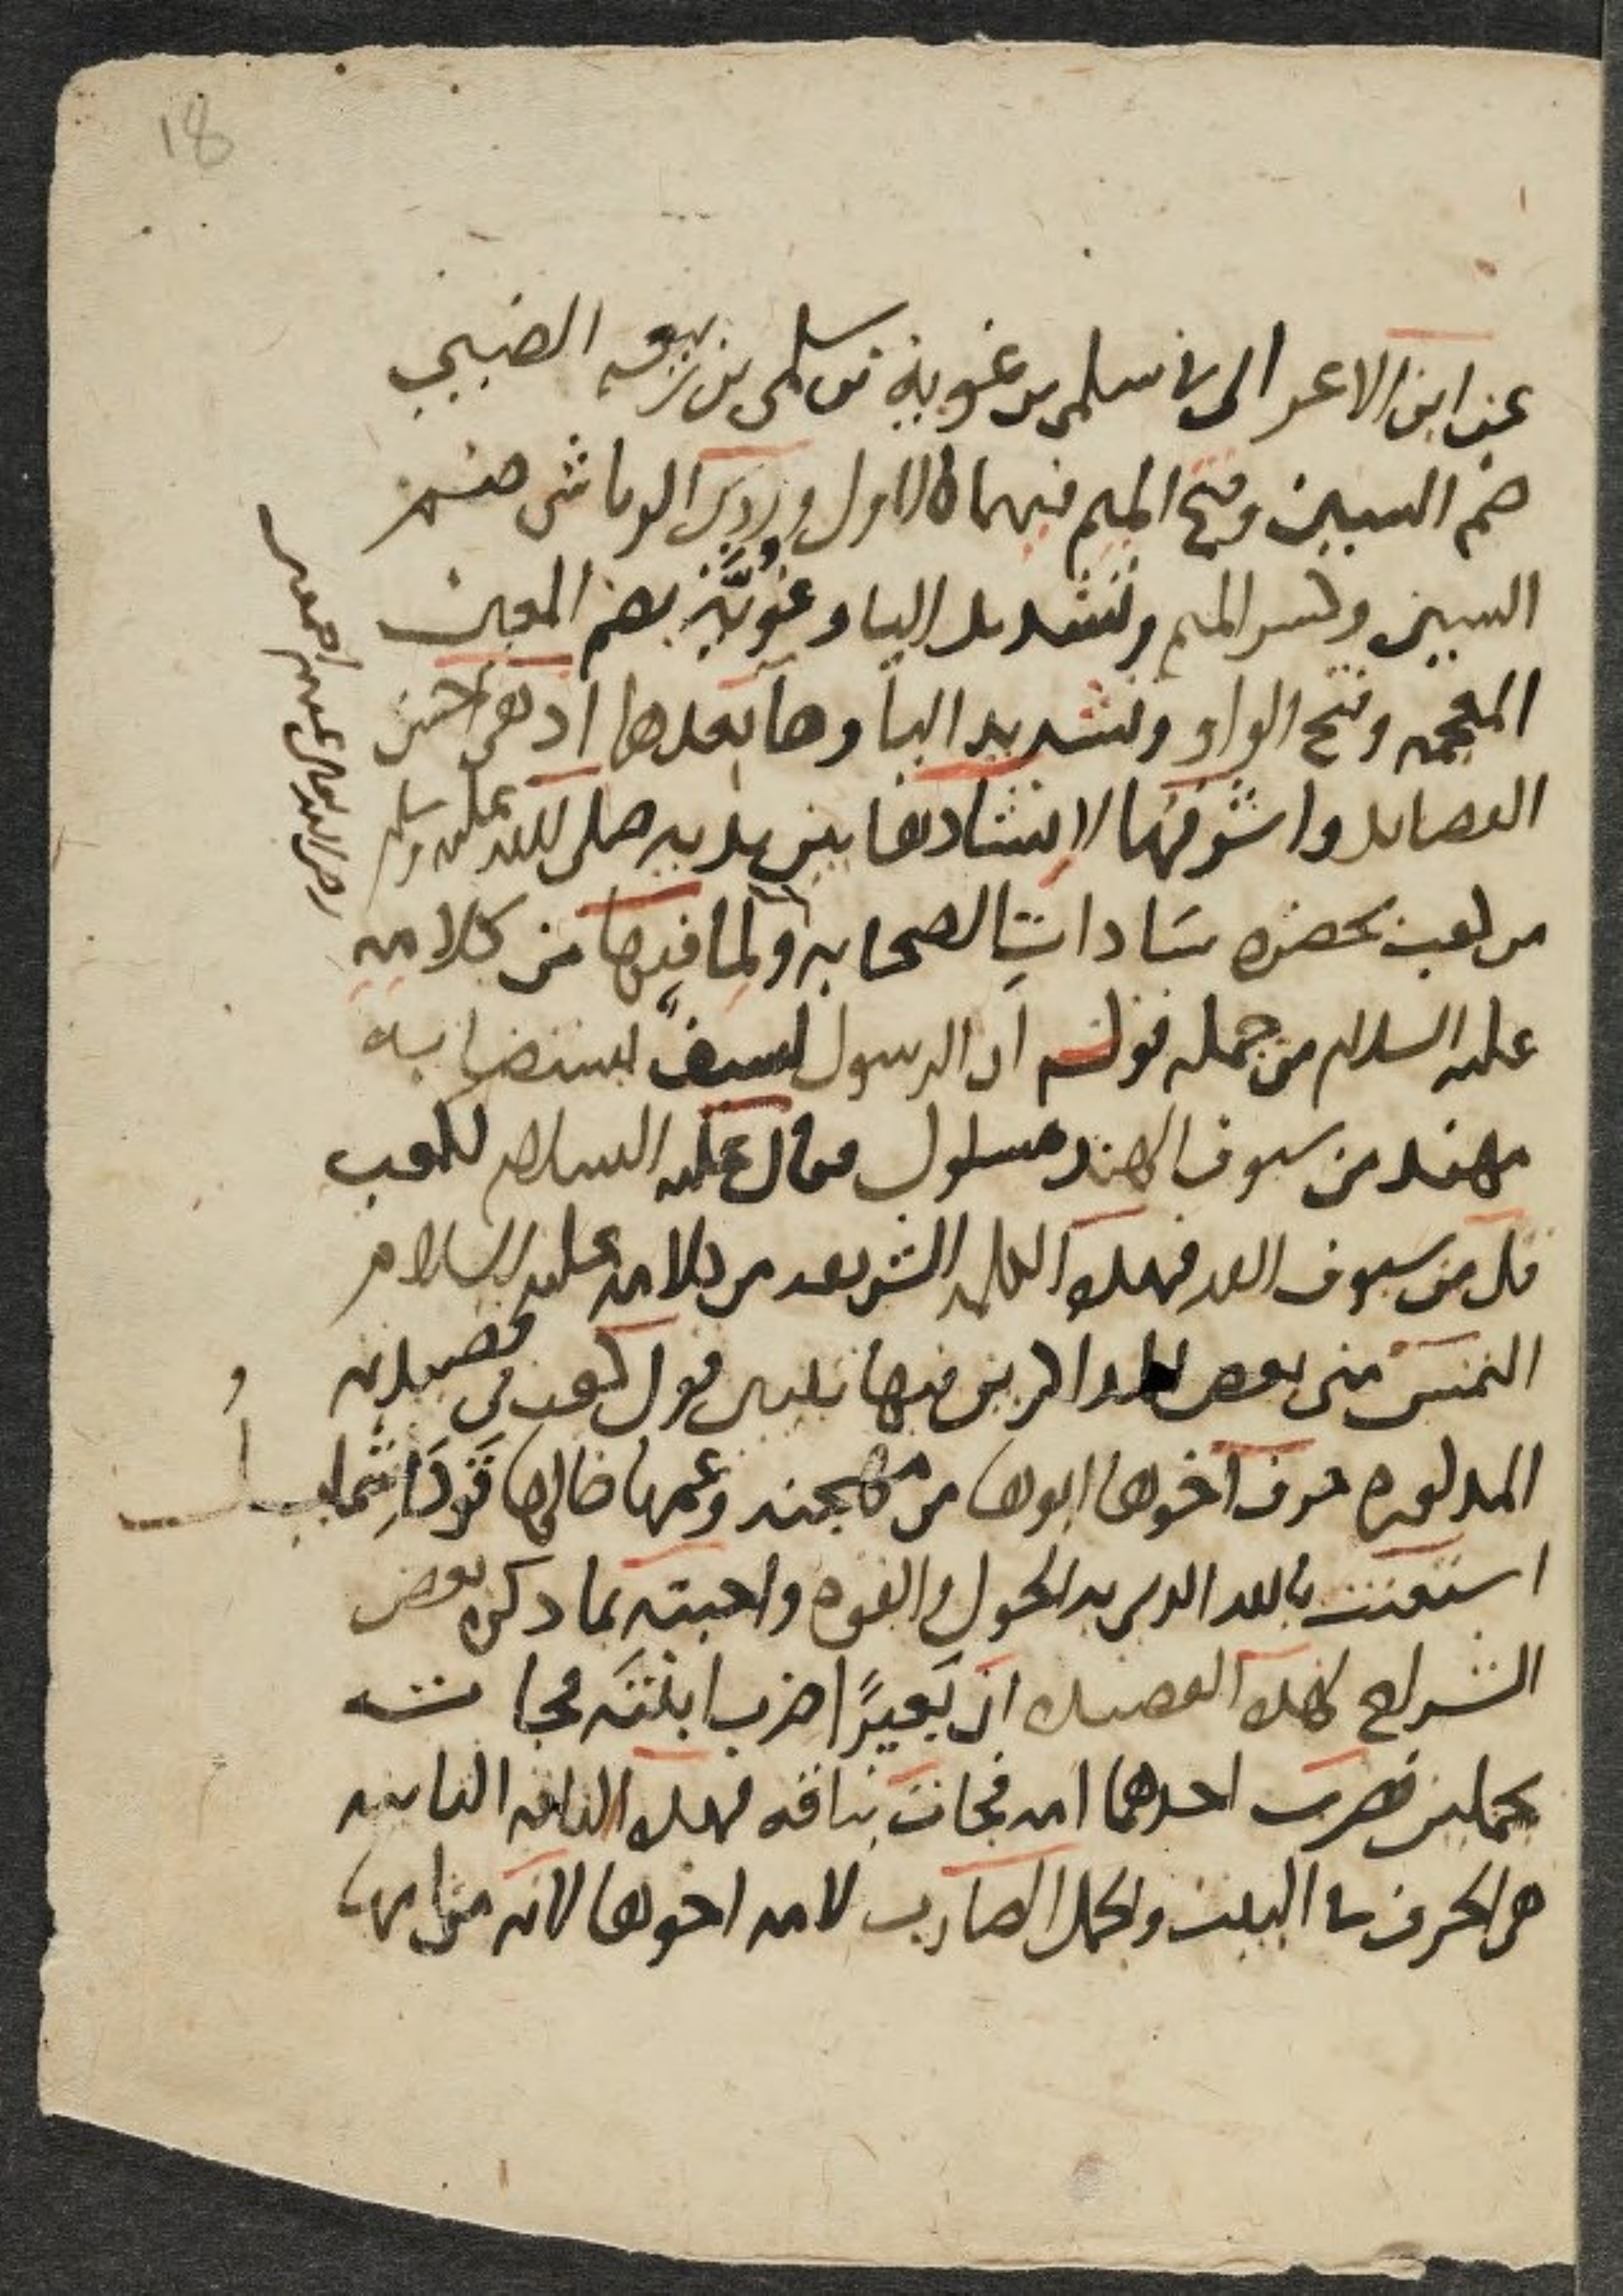 18
عن ابن الاعرابي في سلمى بن غوية بن سلمى بن ربيعه الضبي
ضم السين وفتح الميم فيهما كالاول وردي الوقاشي ضم
السين وكسر الميم وتشديد اليا وغُوَيَّة بضم الغين
المعجمه وفتح الواو وتشديد اليا وها بعدها اذ هي احسن
القصايد واشرفها لانشادها بين يديه صلى الله عليه وسلم
من كعب بحضره سَادات الصحابه ولما فيها من كلامه
عليه السلام من جمله قوله ان الرسول لسيفٌ يستضا به
مهند من سيوف الهند مسلول فقال عليه السلام لكعب
قل من سيوف الله فهذه الكلمه الشريفه من كلامه عليه السلام
التمس مني بعض فيها تفسير قول كعب في قصيدته
المذكوره حرف اخوها ابوها من مهجنه وعمها خالها قَودَا شمليل
استعنت بالله الذي بيده الحول والقوه واجبته بما ذكره بعض
الشراح لهذه القصيده ان بَعيرًا ضرب ابنته فجاءت
بجملين فضرب احدهما امه فجات بناقه فهذه الناقه الثانيه
هي الحرف في البيت والجمل الضارب لامه اخوها لانه من امها
رضي الله تعالى عنهم اجمعين